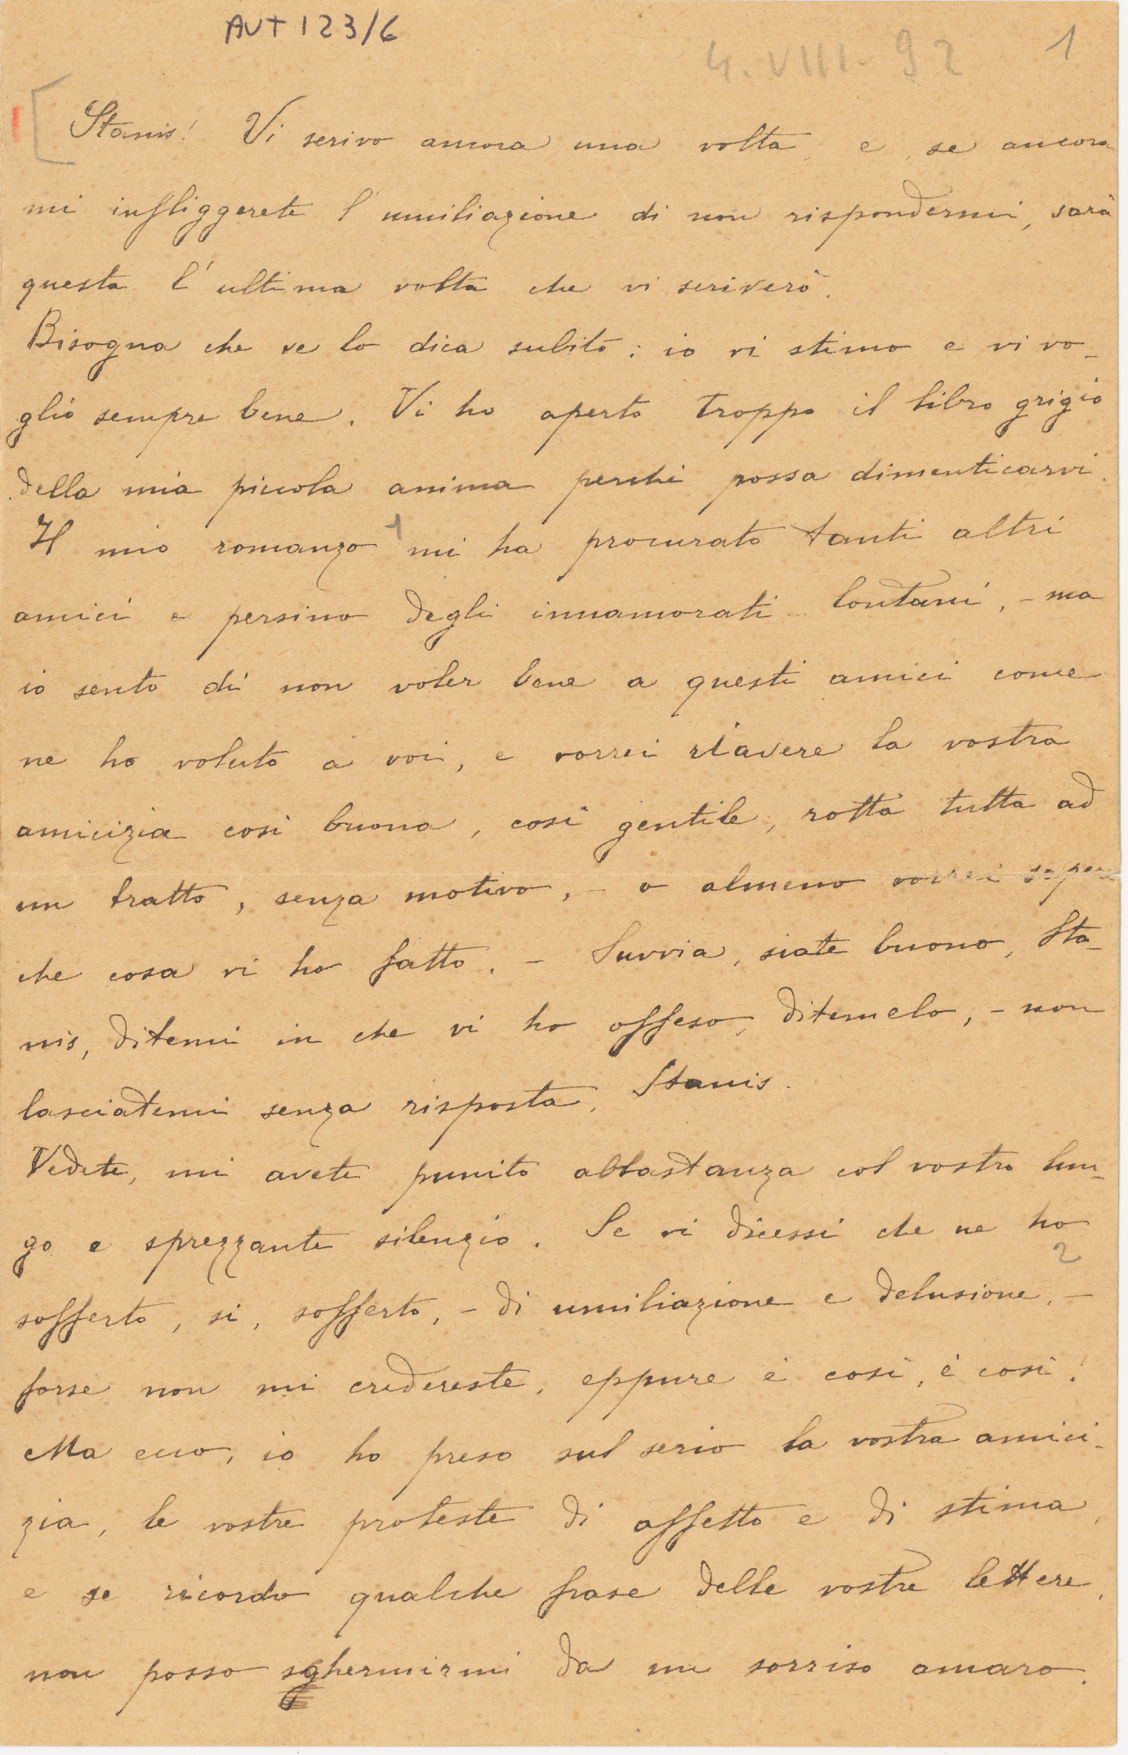 AUT 123/6
4. VIII. 92 1
Stanis! Vi scrivo ancora una volta, e, se ancora
mi infliggerete l'umiliazione di non rispondermi, sarà
questa l'ultima volta che vi scriverò.
Bisogna che ve lo dica subito: io vi stimo e vi vo-
glio sempre bene. Vi ho aperto troppo il libro grigio
della mia piccola anima perchè possa dimenticarvi.
Il mio romanzo 1 mi ha procurato tanti altri
amici e persino degli innamorati lontani, - ma
io sento di non voler bene a questi amici come
ne ho voluto a voi, e vorrei riavere la vostra
amicizia così buona, così gentile, rotta tutta ad
un tratto, senza motivo, - o almeno vorrei sapere
che cosa vi ho fatto. - Suvvia, siate buono, Sta-
nis, ditemi in che vi ho offeso, ditemelo, - non
lasciatemi senza risposta, Stanis.
Vedete, mi avete punito abbastanza col vostro lun-
go e sprezzante silenzio. Se vi dicessi che ne ho
2
sofferto, si, sofferto, - di umiliazione e delusione, -
forse non mi credereste, eppure è così, è così!
Ma ecco, io ho preso sul serio la vostra amici-
zia, le vostre proteste di affetto e di stima,
e se ricordo qualche frase delle vostre lettere,
non posso schermirmi da un sorriso amaro.